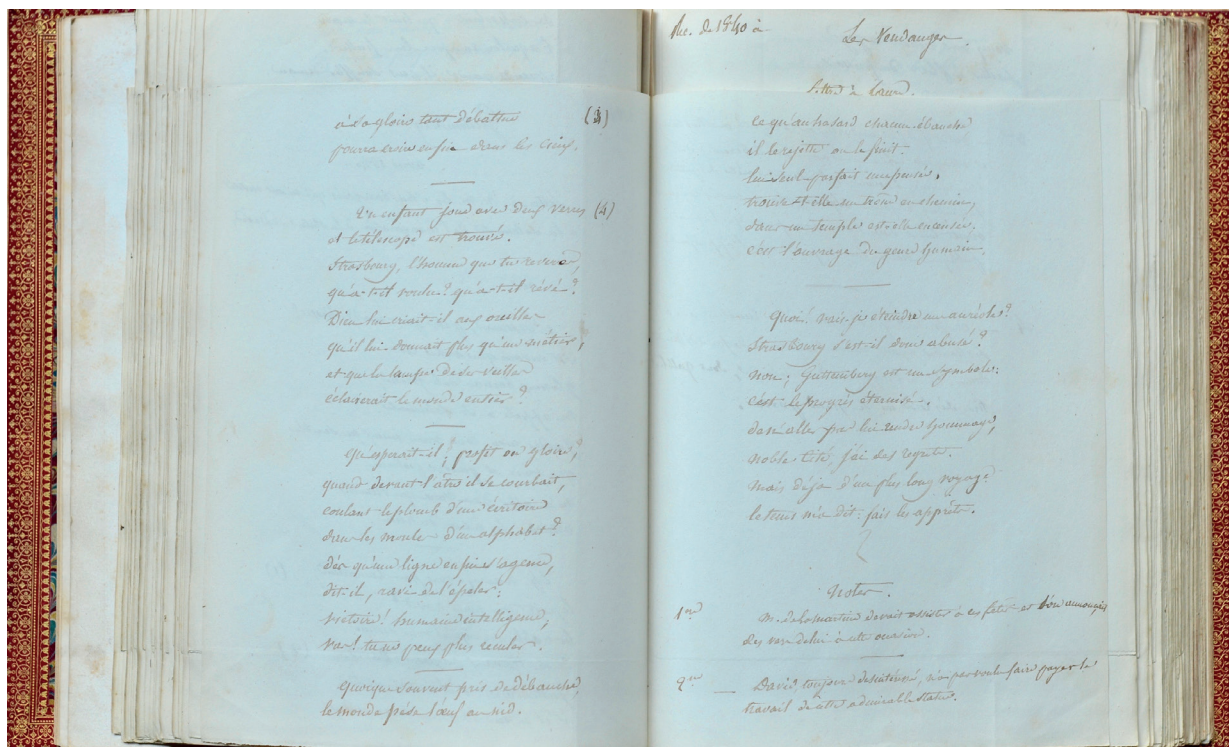 à sa gloire tant débattue (3)
pourra croire enfin dans les cieux.
Un enfant joue avec deux verres (4)
et le télescope est trouvé.
Strasbourg, l'homme que tu révères,
qu'a-t-il voulu? qu'a-t-il rêvé?
Dieu lui criait-il aux oreilles
qu'il lui donnait plus qu'un métier,
et que la lampe de ses veilles
éclairerait le monde entier?
Qu'espérait-il, profit ou gloire,
quand devant l'âtre il se courbait,
coulant le plomb d'une écritoire
dans les moules d'un alphabet?
dès qu'une ligne enfin s'agence,
dit-il, ravi de l'épeler:
victoire! humaine intelligence,
va! tu ne peux plus reculer.
Quoique souvent pris de débauche,
le monde pèse l'œuf au nid.
Suc. de 1840 à
Les Vendanges.
ce qu'au hasard chacun ébauche
il le rejette ou le finit.
lui seul parfait une pensée,
trouve-t-elle un trône en chemin,
dans un temple est-elle encensée,
c'est l'ouvrage du genre humain.
Quoi! vais-je éteindre une auréole?
Strasbourg s'est-il donc abusé?
non; Guttemberg est un symbole:
c'est le progrès éternisé.
de n'aller pas lui rendre hommage,
noble cité, j'ai des regrets.
mais déjà d'un plus long voyage
le tems m'a dit: fais les apprêts.
Notes.
1re M. de Lamartine devait assister à ces fêtes et l'on annonçait
des vers de lui à cette occasion.
2me — David, toujours désintéressé, n'a pas voulu faire payer le
travail de cette admirable statue.